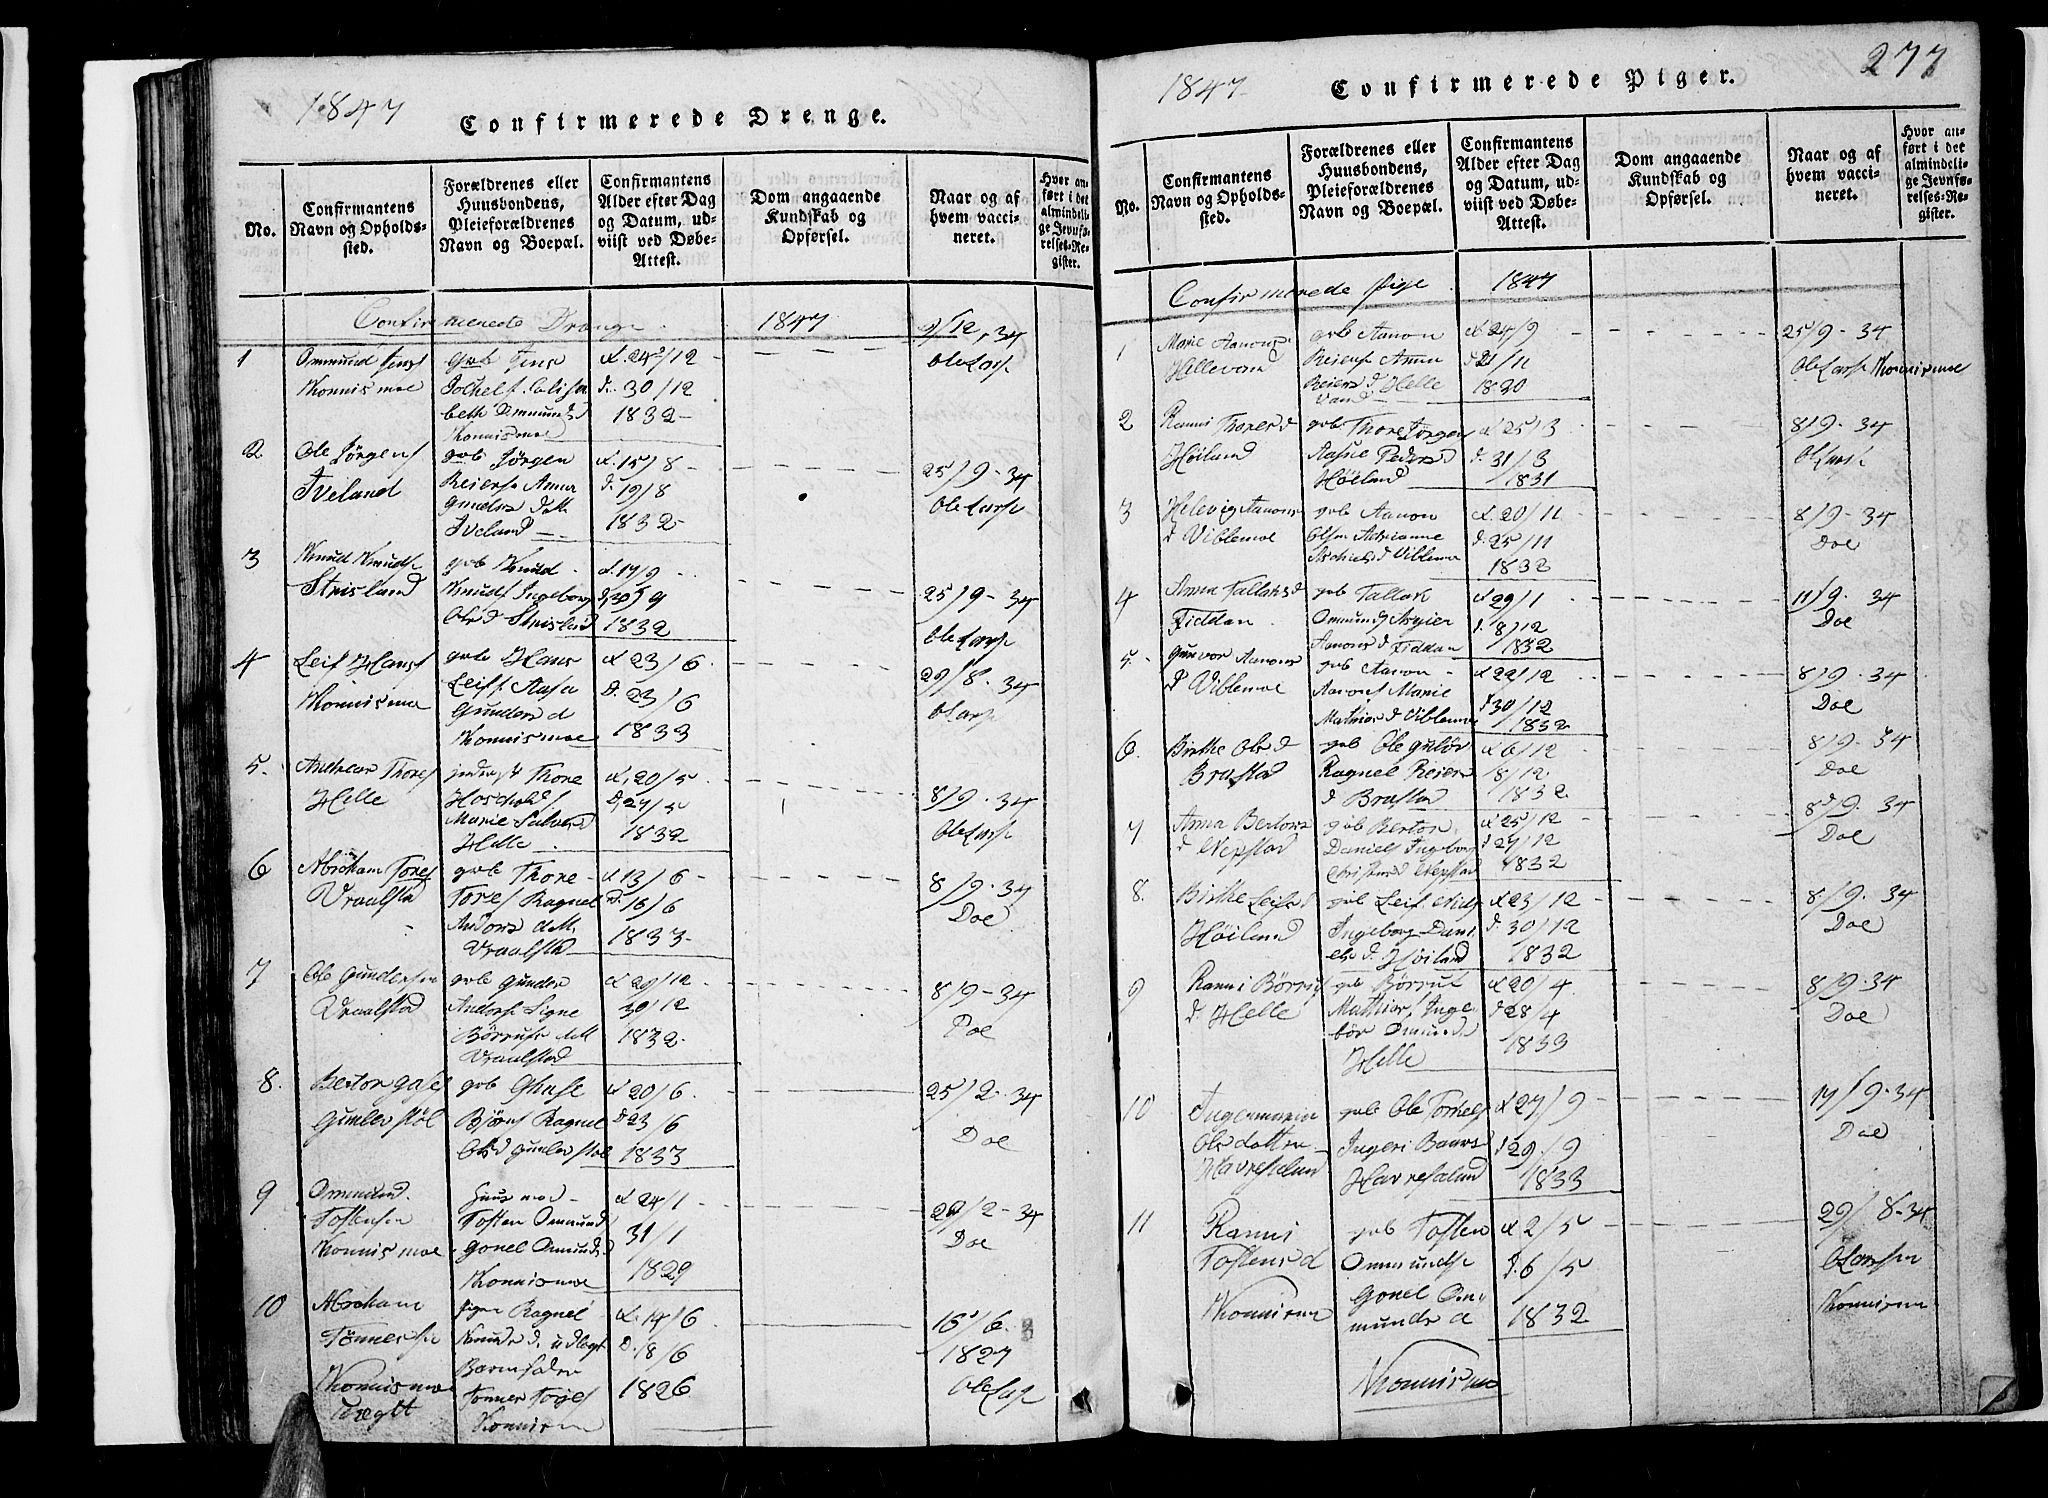 1847
Confirmerede Drenge.
No.
Confirmantens
Navn og Opholds-
sted.
Forældrenes eller
Huusbondens,
Pleieforældrenes
Navn og Boepæl.
Confirmantens
Alder efter Dag
og Datum, ud-
viist ved Døbe-
Attest.
Dom angaaende
Kundskab og
Opførsel.
Naar og af
hvem vacci-
neret.
Hvor an-
ført i det
almindeli-
ge Jevnfø-
relses-Re-
gister.
Confirmerede Drenge 1847
1
Ommund Jens
Konnismoe
gvb Jens
beth Ommunds d
Konnismoe
30/12
1832
Ole Lars
2
Ole Jørgens
Iveland
gvb Jørgen
Reiers Anna
Iveland
15/8
19/8
1832
25/9-34
Ole Lars
3
Knud Knuds
Strisland
gvb Knud
Knuds Ingeborg
Ols d Strisland
17/9
1832
25/9-34
Ole Lars
4
Leif Hans
Konnismoe
gvb Hans
Leifs Aasa
Gunders d
Konnismoe
23/6
D. 23/6
1833
29/8. 34
O Lars
5.
Andreas Thores
Helle
Thore
Marie
Helle
20/5
D. 27/5
1832
8/9. 34
Ole Lars
6
Abraham Tores
Vraalstad
gvb Thore
Tores Ragnel
Vraalstad
13/6
D. 16/6
1833
8/9. 34
Doe
7
Ole Gundersen
Vraalstad
gvb Gunder
Andors Signe
Vraalstad
29/12
30/12
1832
8/9-34
Doe
8.
Berton
Gumlestøl
gvb
Bjørns Ragnel
Ols d
20/6
D 23/6
1833
25/2. 34
Doe
9
Ommund
Tostensen
Konnismoe
Huusmad
Tosten Ommunds
Gonel Ommunds
Konnismoe
24/1
31/1
1829
29/2-34
Doe
10
Abraham
Tønnesen
Konnismoe
Pigen Ragnel
Knuds d. udlagt
Barnefader
Konnism
14/6
D. 18/6
1826
16/6.
1827
Ole Lars
277
1847
Confirmerede Piger.
No.
Confirmantens
Navn og Opholds-
sted.
Forældrenes eller
Huusbondens,
Pleieforældrenes
Navn og Boepæl.
Confirmantens
Alder efter Dag
og Datum, ud-
viist ved Døbe-
Attest.
Dom angaaende
Kundskab og
Opførsel.
Naar og af
hvem vacci-
neret.
Hvor an-
ført i det
almindeli-
ge Jevnfø-
relses-Re-
gister.
Confirmerede Pige 1847
1
Marie Aanons
Hellevand
gvb Aanon
Reiers Anna
Reiers d Helle
vand
24/9
25/9-34
Ole Lars Konnismoe
2
Ranni Thores d
Høiland
gvb Thore Jørgen
Aasne Peders d
Høiland
25/3
D. 31/3
1831
8/9-34
O Lars
3
Helevig Aanons
d Viblemoe
gvb Aanon
Olsen Adrianne
20/11
D. 25/11
1832
8/9-34
Doe
4
Anna Tallaks d
Fiddan
gvb Tallak
Aanons d Fiddan
29/1
8/12
1832
11/9. 34
Doe
5.
Gunvor Aanons
d Viblemoe
gvb Aanon
Aanons Marie
Mathias d Viblemoe
22/12
30/12
1832
8/9. 34
Doe
6.
Birthe Ols d
Brastad
gvb Ole
Ragnel Reiers
d Brastad
6/12
8/12
1832
8/9-34
Doe
7
Anna Bertons
d Nepstad
gvb Berton
Daniels Ingeborg
Nepstad
25/12
27/12
1832
8/9. 34
Doe
8.
Birthe Leifs d
Høiland
gvb Leif Niels
Ingeborg Dani
els d Høiland
23/12
30/12
1832
8/9-34
Doe
9
Ranni Børrufs
d Helle
gvb Børruf
Mathias, Inge
bor Ommunds
Helle
20/4
28/4
1833
8/9. 34
Doe
10
Ingermarie
Olsdatter
Havresland
gvb Ole Torkels
Ingeri
Havresaland
27/9
29/9
1833
17/9-34
Doe
11
Ranni
Tostens d
Konnismoe
gvb Tosten
Ommundsen
Gonel Om-
munds d
Konnismoe
2/5
D. 6/5
1832
29/8-34
O Larsen
Konnism